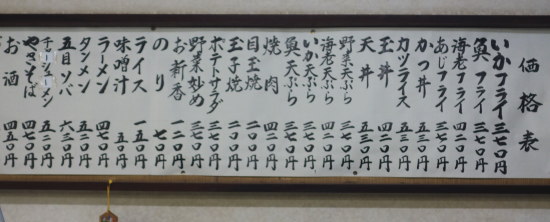 価格表
いかフライ 三七〇円
魚フライ 三七〇円
海老フライ 四二〇円
あじフライ 三七〇円
かつ丼 五二〇円
カツライス 五三〇円
玉丼 四二〇円
天丼 五三〇円
野菜天ぷら
海老天ぷら
いか天ぷら 三七〇円
魚天ぷら 三七〇円
焼肉 四二〇円
目玉焼 二〇〇円
玉子焼 二〇〇円
ポテトサラダ 二〇〇円
野菜炒め 三七〇円
お新香 一二〇円
のり 七〇円
ライス 一五〇円
味噌汁 五〇円
ラーメン 四七〇円
タンメン 五二〇円
五目ソバ 六三〇円
チャーシューメン
やきそば 四七〇円
お酒 四五〇円